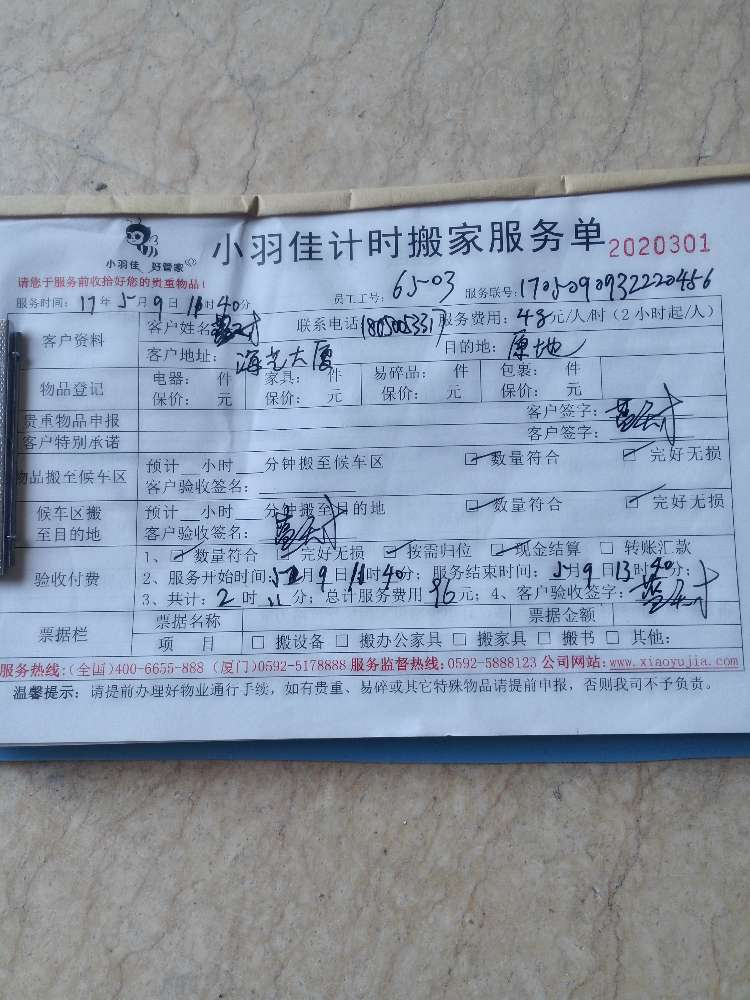 小羽佳 好管家
小羽佳计时搬家服务单 2020301
请您于服务前收拾好您的贵重物品!
服务时间: 17年5月9日11时40分 员工工号: 65-03 服务联号: 1705090932220456
客户资料 客户姓名: 联系电话 服务费用: 48元/人/时(2小时起/人)
客户地址: 海光大厦 目的地: 原地
物品登记 电器: 件 家具: 件 易碎品: 件 包裹: 件
保价: 元 保价: 元 保价: 元 保价: 元
贵重物品申报 客户签字:
客户特别承诺 客户签字:
物品搬至候车区 预计__小时___分钟搬至候车区 ☑ 数量符合 ☑ 完好无损
客户验收签名:
候车区搬至目的地 预计__小时___分钟搬至目的地 ☑ 数量符合 ☑ 完好无损
客户验收签名:
验收付费 1、☑ 数量符合 ☑ 完好无损 ☑ 按需归位 ☑ 现金结算 □ 转账汇款
2、服务开始时间: 5月9日11时40分; 服务结束时间: 5月9日13时40分;
3、共计: 2时 分; 总计服务费用 96元; 4、客户验收签字:
票据栏 票据名称 票据金额
项 目 □ 搬设备 □ 搬办公家具 □ 搬家具 □ 搬书 □ 其他:
服务热线:(全国)400-6655-888 (厦门)0592-5178888 服务监督热线: 0592-5888123 公司网站: www.xiaoyujia.com
温馨提示: 请提前办理好物业通行手续, 如有贵重、易碎或其它特殊物品请提前申报, 否则我司不予负责。